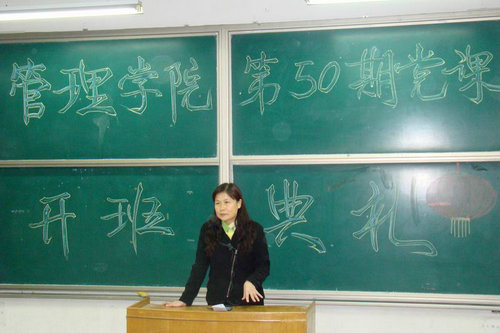 管理学院第50期党课
开班典礼